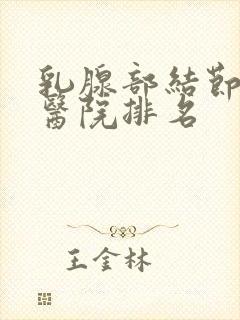 乳腺部結節
醫院排名
王金林